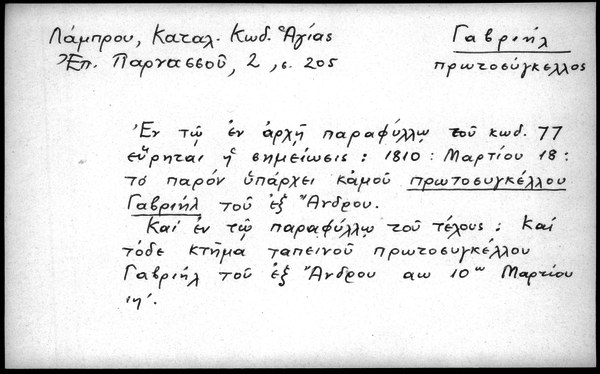 Λάμπρου, Καταλ. Κωδ. Ἁγίας
Ἐπ. Παρνασσοῦ, 2, σ. 205
Γαβριήλ
πρωτοσύγκελλος
Ἐν τῷ ἐν ἀρχῇ παραφύλλῳ τοῦ κωδ. 77
εὕρηται ἡ σημείωσις : 1810 : Μαρτίου 18 :
τὸ παρόν ὑπάρχει κἀμοῦ πρωτοσυγκέλλου
Γαβριήλ τοῦ ἐξ Ἄνδρου.
Καί ἐν τῷ παραφύλλῳ τοῦ τέλους : Καί
τόδε κτῆμα ταπεινοῦ πρωτοσυγκέλλου
Γαβριήλ τοῦ ἐξ Ἄνδρου αω 10ῳ Μαρτίου
ιη΄.